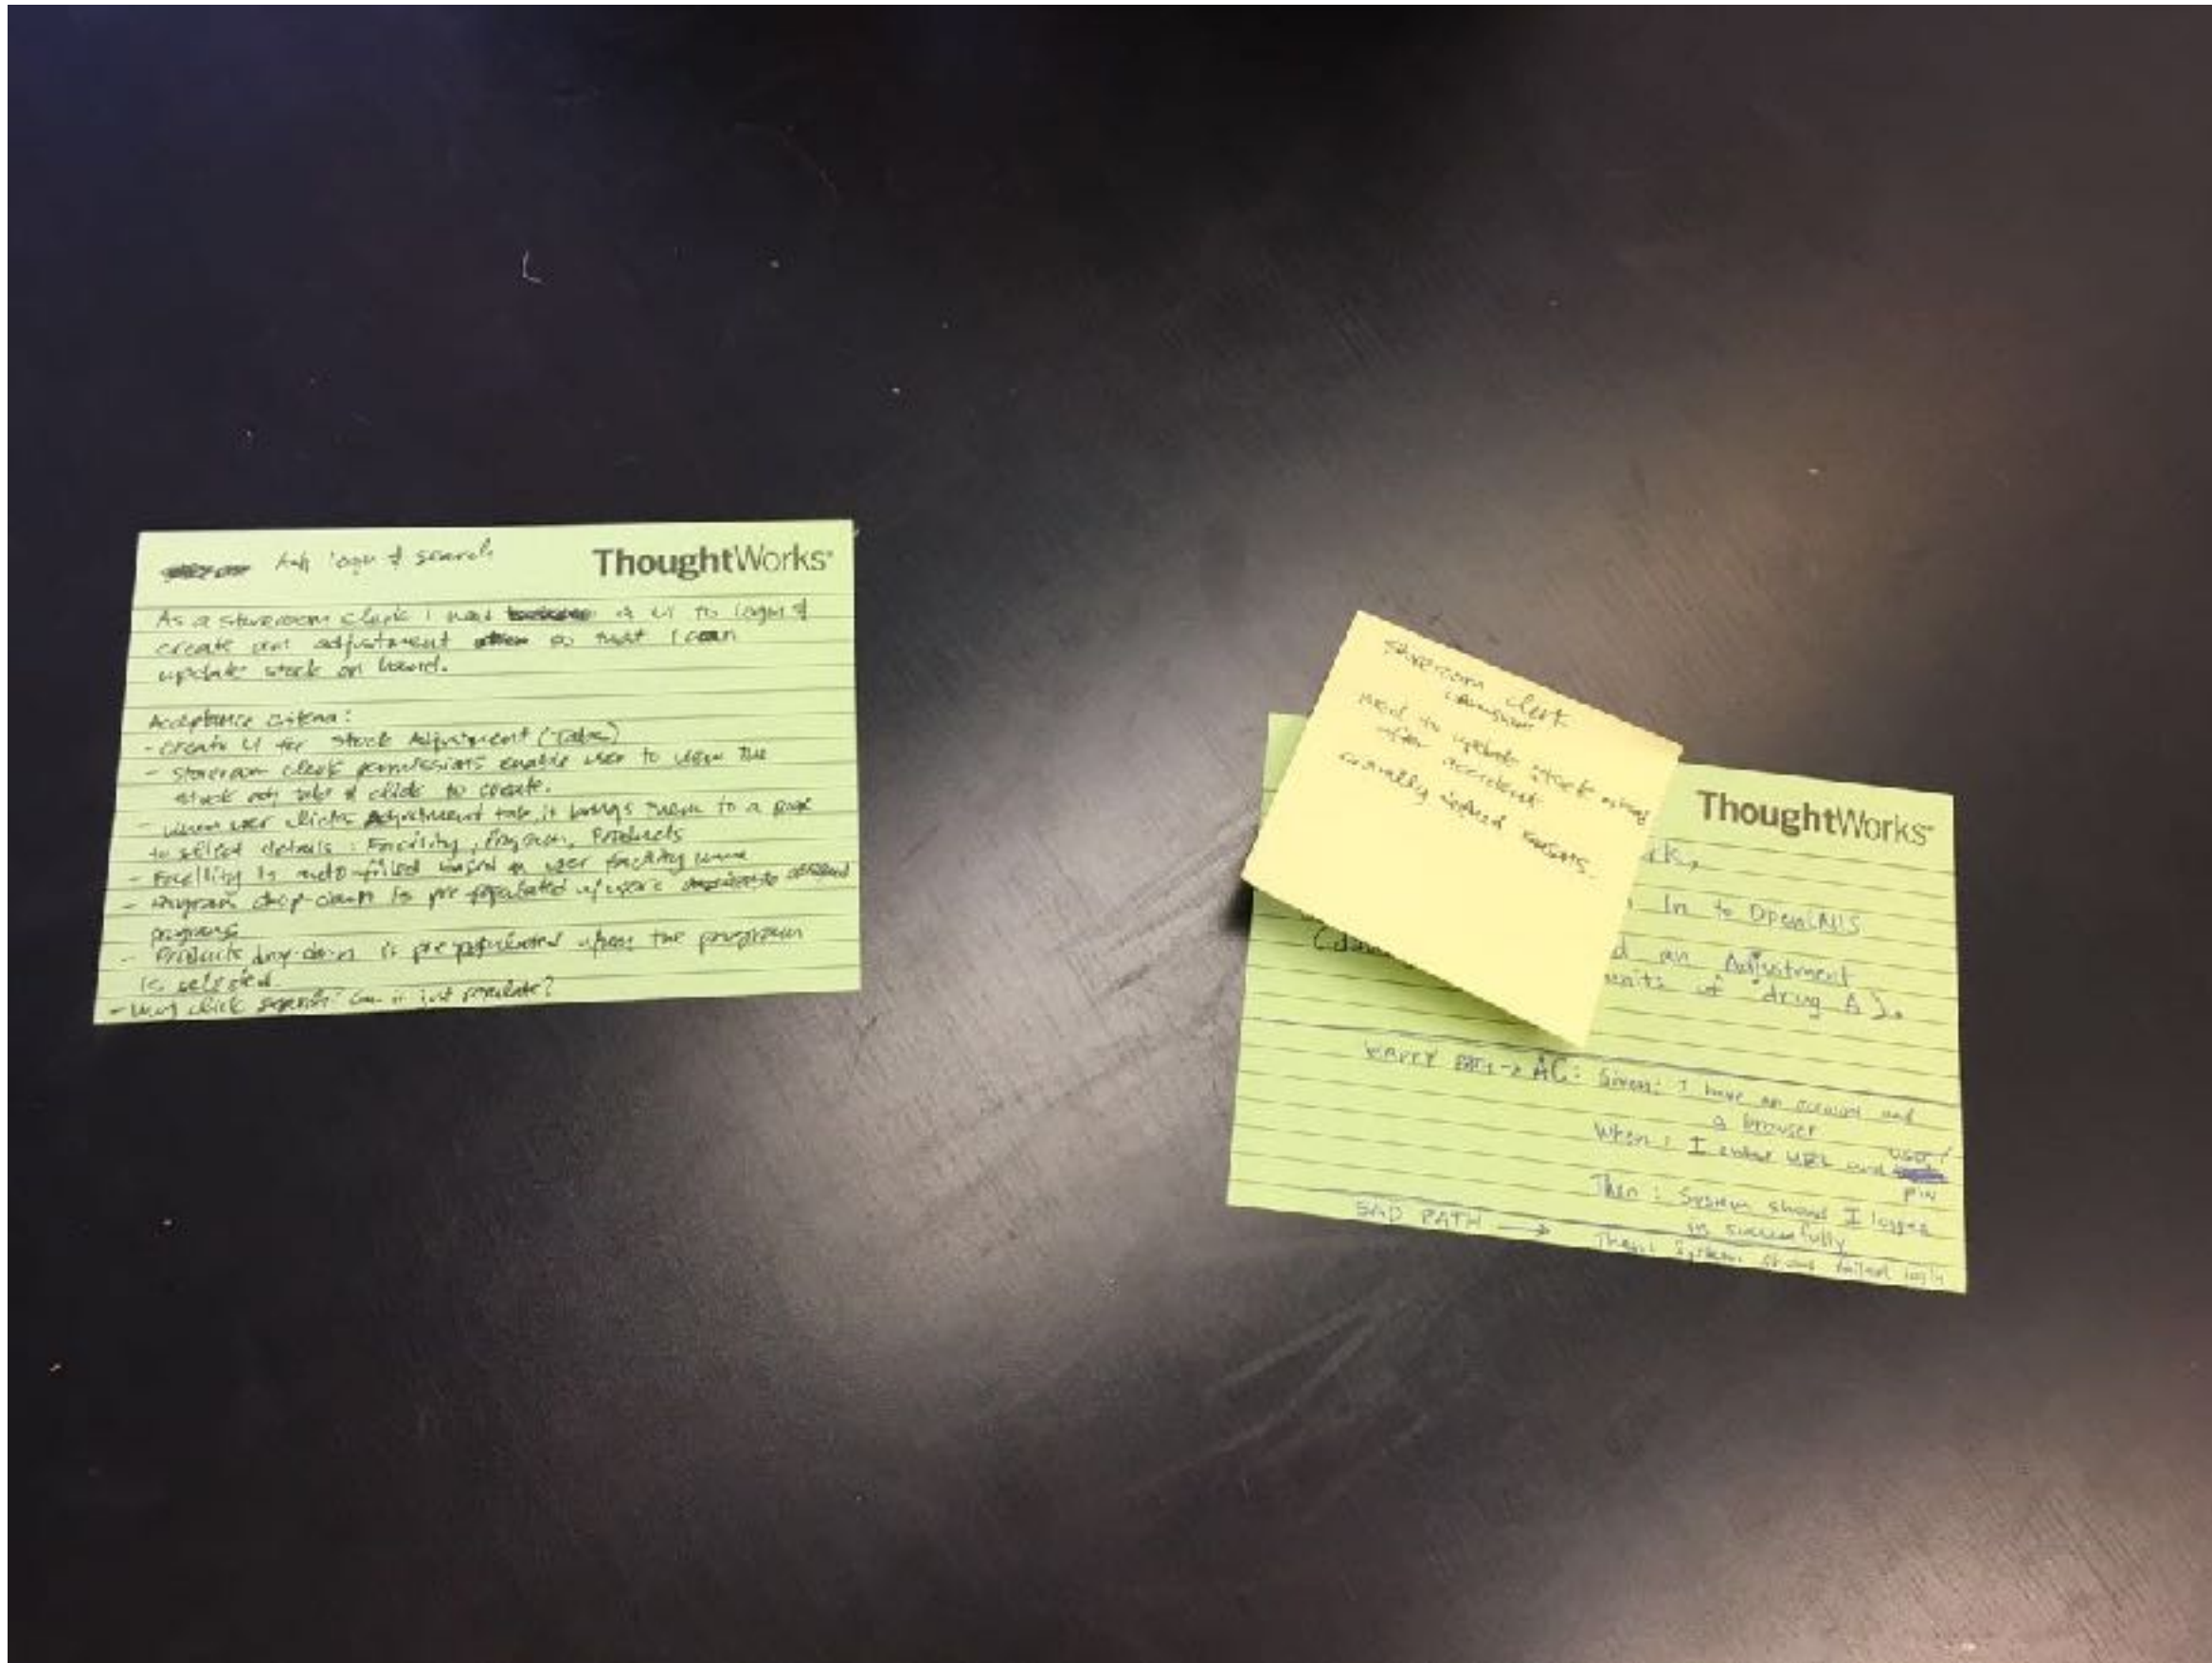 login & search
ThoughtWorks
As a storeroom clerk I need a UI to login &
create an adjustment so that I can
update stock on hand.
Acceptance criteria:
- Create UI for Stock Adjustment (Tabs)
- Storeroom clerk permissions enable user to view the
stock adj tab & click to create.
- When user clicks Adjustment tab, it brings them to a page
to select details : Facility, Program, Products
- Facility is auto-filled based on user facility name
- Program drop-down is pre populated w/users
programs
- Products drop-down is pre populated upon the program
is selected.
- Why click search? Can it just populate?
Storeroom clerk
need to update stock
after accident
causally induced reasons.
ThoughtWorks
rk,
In to OpenLMIS
d an Adjustment
units of drug A).
HAPPY PATH -> AC: Given: I have an account and
a browser
When : I enter URL and user /
pin
Then : System shows I logged
in successfully
SAD PATH → Then: System shows failed login